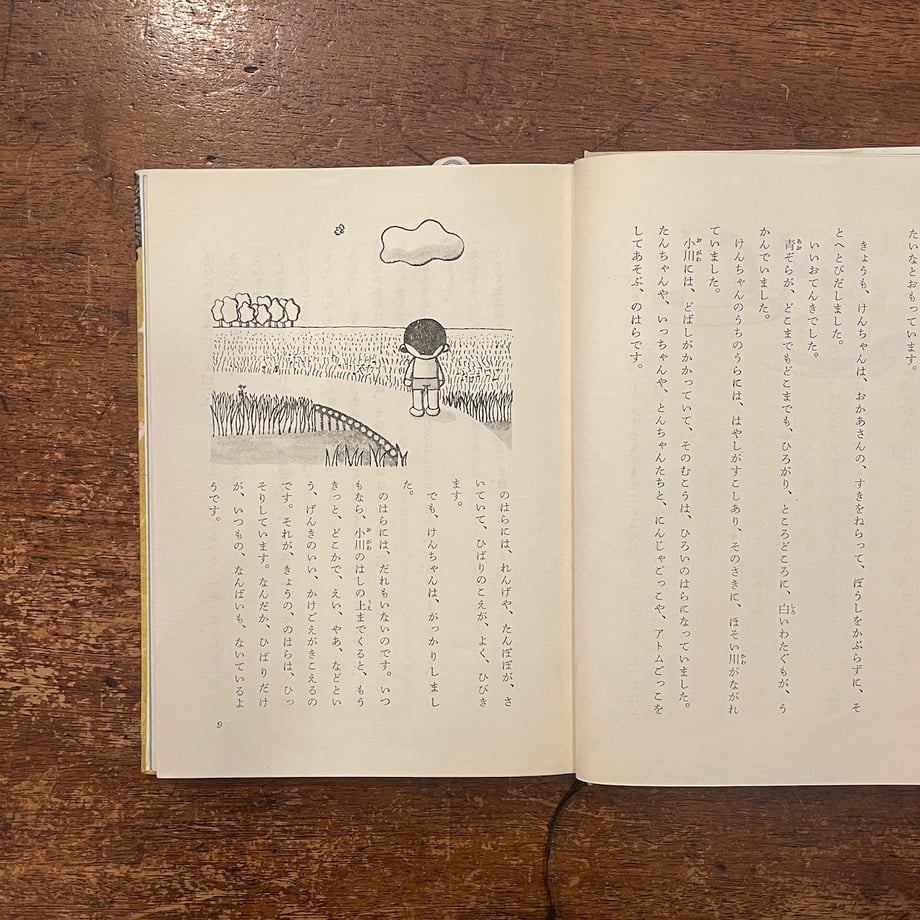 たいなとおもっています。
きょうも、けんちゃんは、おかあさんの、すきをねらって、ぼうしをかぶらずに、そ
とへとびだしました。
いいおてんきでした。
青ぞらが、どこまでもどこまでも、ひろがり、ところどころに、白いわたぐもが、う
かんでいました。
けんちゃんのうちのうらには、はやしがすこしあり、そのさきに、ほそい川がながれ
ていました。
小川には、どばしがかかっていて、そのむこうは、ひろいのはらになっていました。
たんちゃんや、いっちゃんや、とんちゃんたちと、にんじゃごっこや、アトムごっこを
してあそぶ、のはらです。
のはらには、れんげや、たんぽぽが、さ
いていて、ひばりのこえが、よく、ひびき
ます。
でも、けんちゃんは、がっかりしまし
た。
のはらには、だれもいないのです。いつ
もなら、小川のはしの上までくると、もう
きっと、どこかで、えい、やあ、などとい
う、げんきのいい、かけごえがきこえるの
です。それが、きょうの、のはらは、ひっ
そりしています。なんだか、ひばりだけ
が、いつもの、なんばいも、ないているよ
うです。
9